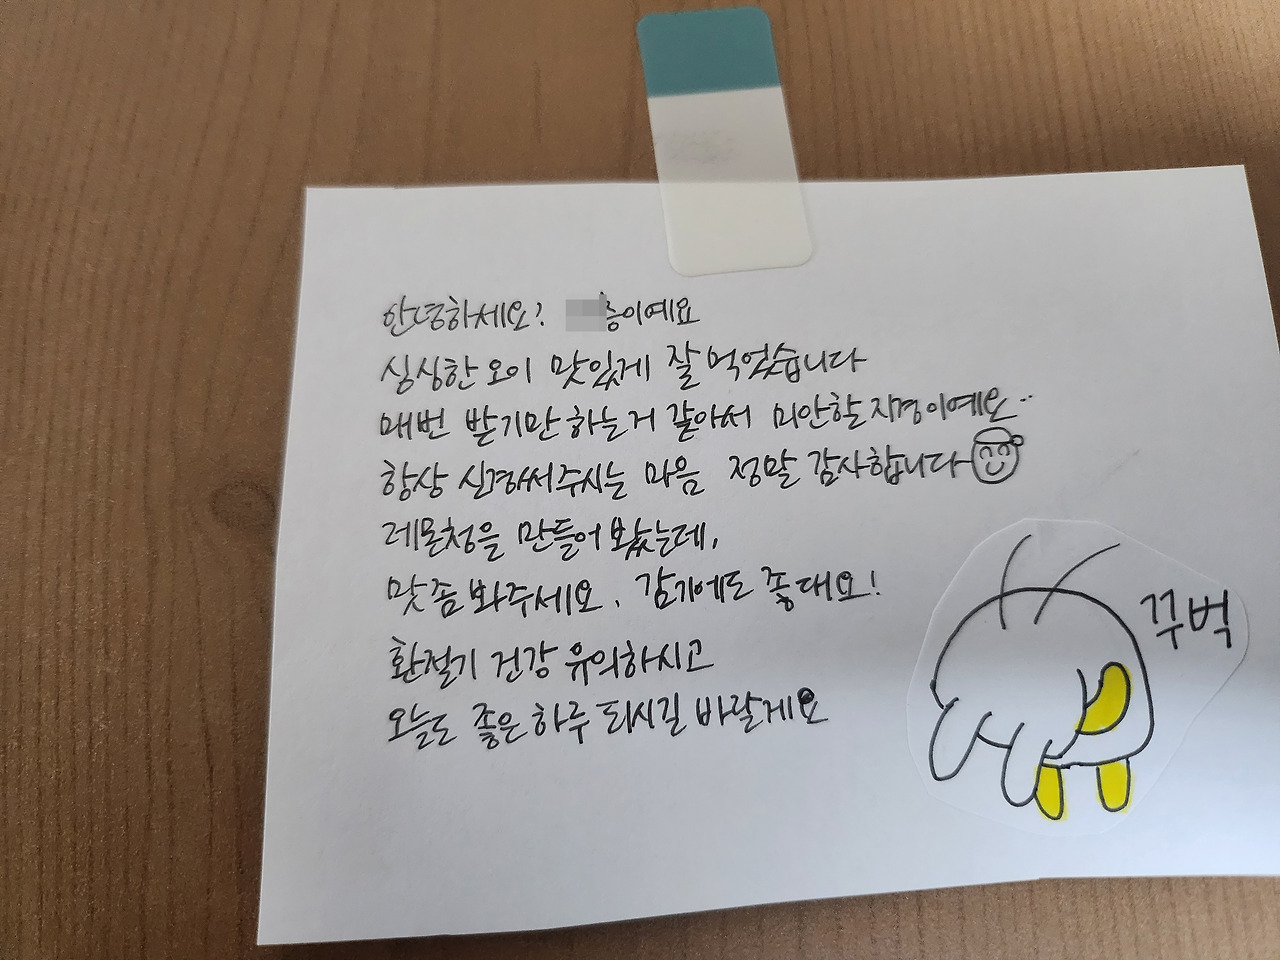 안녕하세요? 층이예요
싱싱한 오이 맛있게 잘 먹었습니다
매번 받기만 하는거 같아서 미안할 지경이예요..
항상 신경써주시는 마음 정말 감사합니다
레몬청을 만들어 봤는데,
맛 좀 봐주세요. 감기에도 좋대요!
환절기 건강 유의하시고
오늘도 좋은 하루 되시길 바랄게요
꾸벅